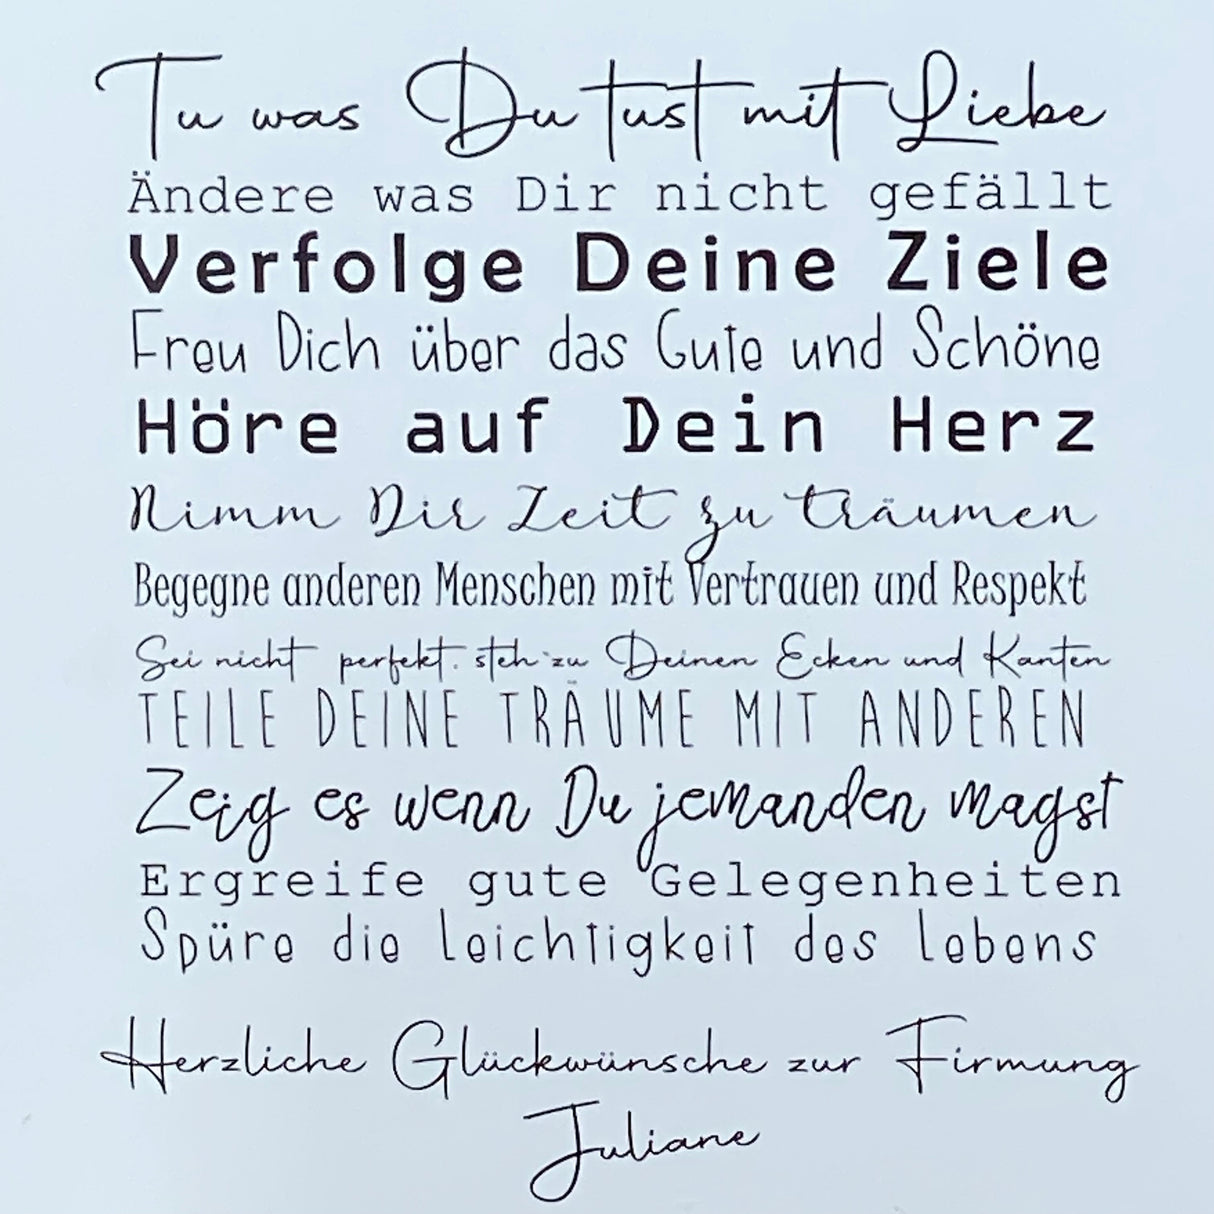 Tu was Du tust mit Liebe
Ändere was Dir nicht gefällt
Verfolge Deine Ziele
Freu Dich über das Gute und Schöne
Höre auf Dein Herz
Nimm Dir Zeit zu träumen
Begegne anderen Menschen mit Vertrauen und Respekt
Sei nicht perfekt. steh zu Deinen Ecken und Kanten
TEILE DEINE TRÄUME MIT ANDEREN
Zeig es wenn Du jemanden magst
Ergreife gute Gelegenheiten
Spüre die Leichtigkeit des Lebens
Herzliche Glückwünsche zur Firmung
Juliane